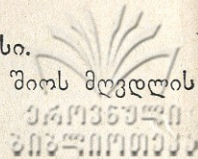 სი.
შიოს მღვდლის
ეროვნული
ბიბლიოთეკა